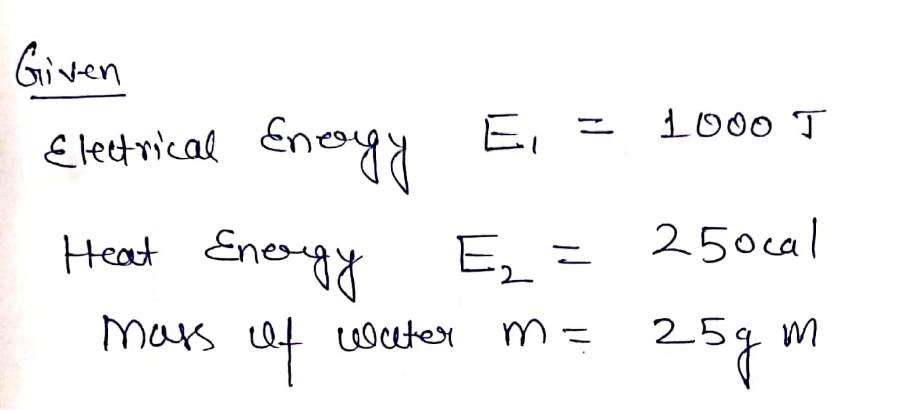 Given
Electrical Energy E₁ = 1000 J
Heat Energy E₂ = 250cal
Mass of water m = 25gm